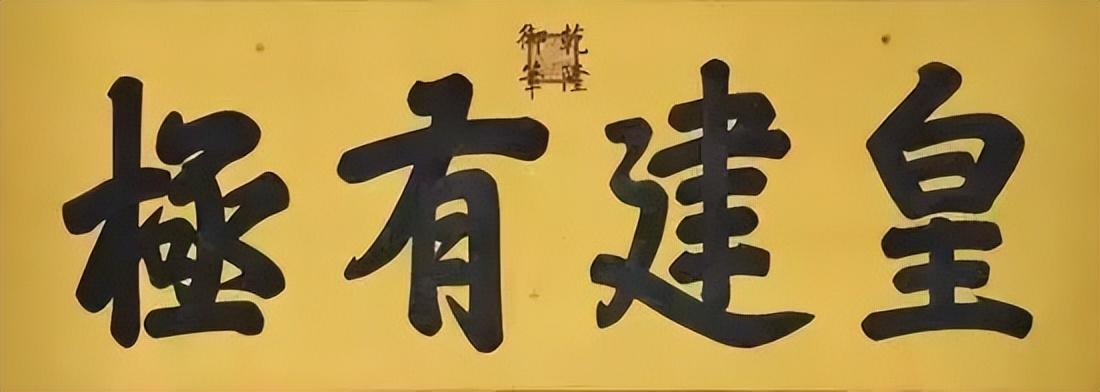 皇建有極
乾隆御筆